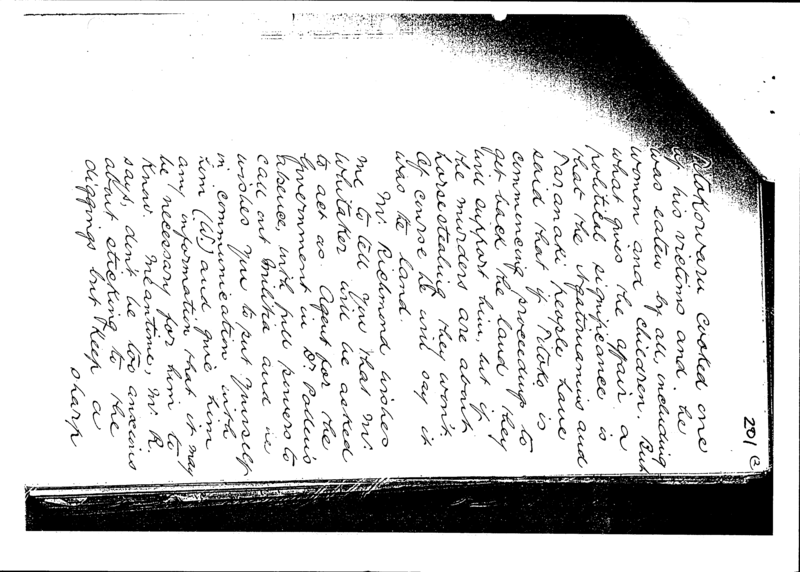 201 B
Mokowaru cooked one
of his victims and he
was eaten by all, including
women and children. But
what gives the affair a
political significance is
that the Ngatimamus and
Taranaki people have
said that if Ngtoko is
commencing proceedings to
get back the land they
will support him, but if
the murders are about
horsestealing they won't.
Of course he will say it
was to land.
Mr. Richmond wishes
me to tell you that Mr.
Whitaker will be asked
to act as Agent for the
Government in Dr. Pollen's
absence, with full powers to
call out Militia and he
wishes you to put yourself
in communication with
him (W.) and give him
any information that it may
be necessary for him to
know. Meantime, Mr. R
says, don't be too anxious
about sticking to the
diggings but keep a
sharp